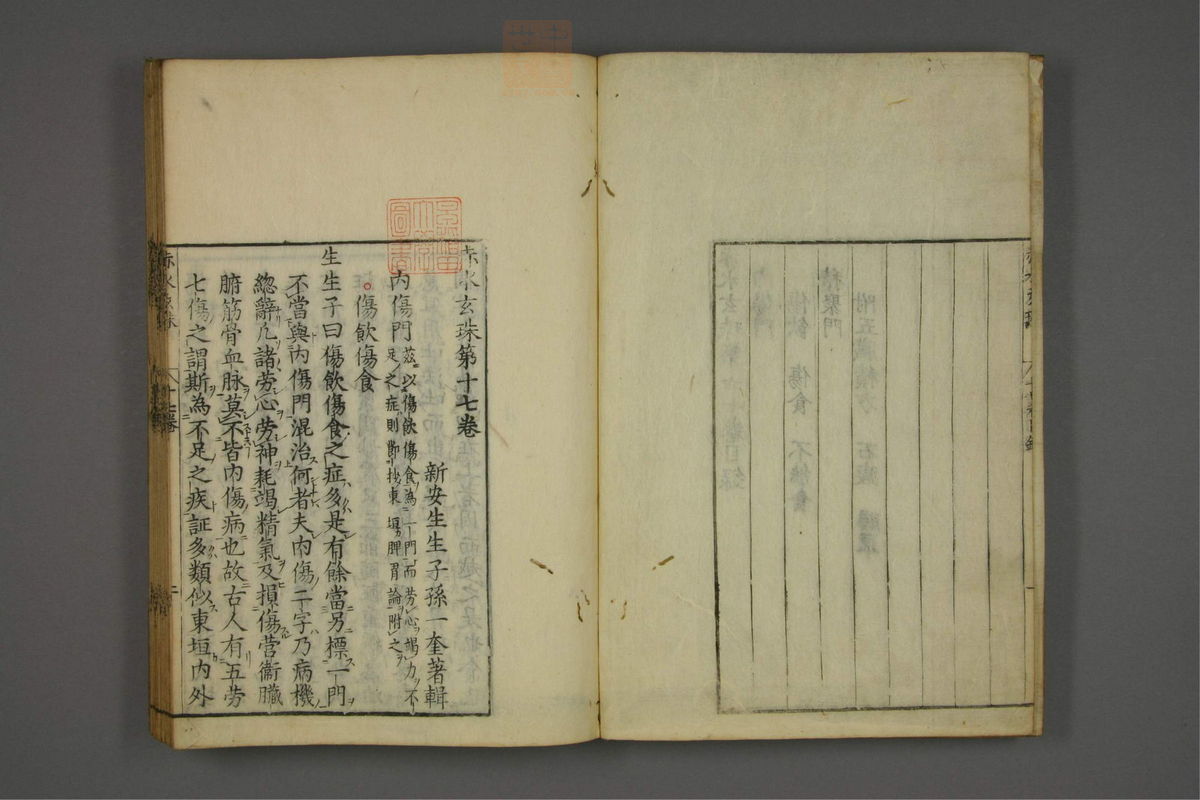 赤水玄珠第十七卷
新安生生子孫一奎著輯
內傷門
茲以傷飲傷食為一門而勞心竭力不
足之症則節抄東垣脾胃論附之
傷飲傷食
生生子曰傷飲傷食之症多是有餘當另標一門
不當與內傷門混治何者夫內傷二字乃病機
緫辭凡諸勞心勞神耗竭精氣及損傷营衞臟
腑筋骨血脉莫不皆內傷病也故古人有五勞
七傷之謂斯為不足之疾証多類似東垣內外
赤水玄珠
十七卷
一